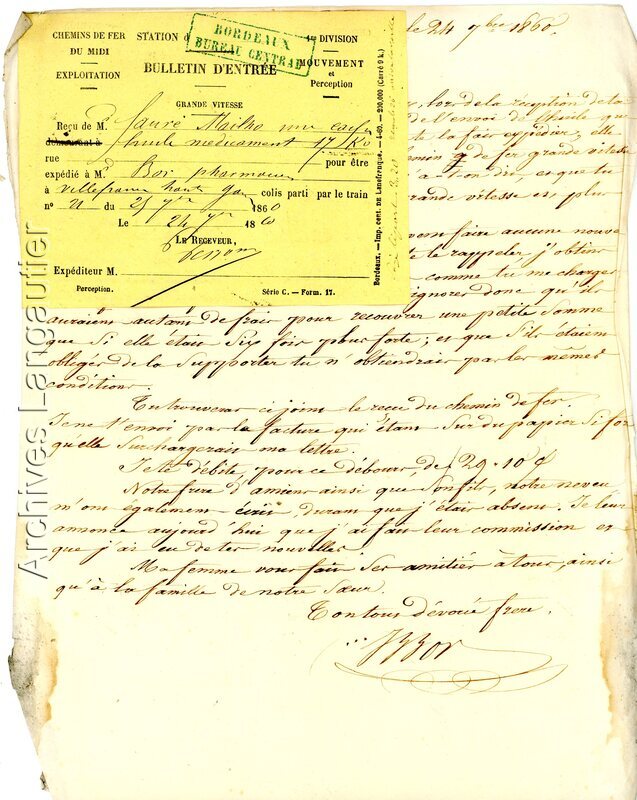 le 24 7bre 1860.
CHEMINS DE FER
DU MIDI
EXPLOITATION
STATION
BORDEAUX
BUREAU CENTRAL
DIVISION
MOUVEMENT
et
Perception
BULLETIN D'ENTRÉE
GRANDE VITESSE
Reçu de M. Fauré Mailho une
huile médicament 17 K
rue pour être
expédié à M. Bor pharmacien
à Villefranche haut Gar colis parti par le train
n° 21 du 25 7bre 1860
Le 24 7bre 1860
LE RECEVEUR,
Expéditeur M.
Perception.
Série C. — Form. 17.
Bordeaux. — Imp. cent. DE Lanefranque.
lors de la réception de la
de l'envoi de l'huile que
la faire expédier; elle
chemin de fer grande vitesse
a-t-on dit, et que tu
grande vitesse est plus
faire aucune nouve
te le rappeler, j'obtins
comme tu me charges
ignorer donc qu'il
auraient autant de frais pour recouvrer une petite somme
que si elle était six fois plus forte; et que s'ils étaient
obligés de la supporter tu n'obtiendrais pas les mêmes
conditions.
Tu trouveras ci joint le recu du chemin de fer.
Je ne t'envoi pas la facture qui étant sur du papier si for
qu'elle surchargerait ma lettre.
Je te débite, pour ce débours, de f 29.10
Notre frere d'amiens ainsi que son fils, notre neveu
m'ont également écris, durant que j'étais absent. Je leur
annonce aujourd'hui que j'ai fait leur commission et
que j'ai eu de tes nouvelles.
Ma femme vous fait ses amitiés à tous, ainsi
qu'à la famille de notre sœur.
Ton tous dévoué frere.
Bor
Archives Langautier